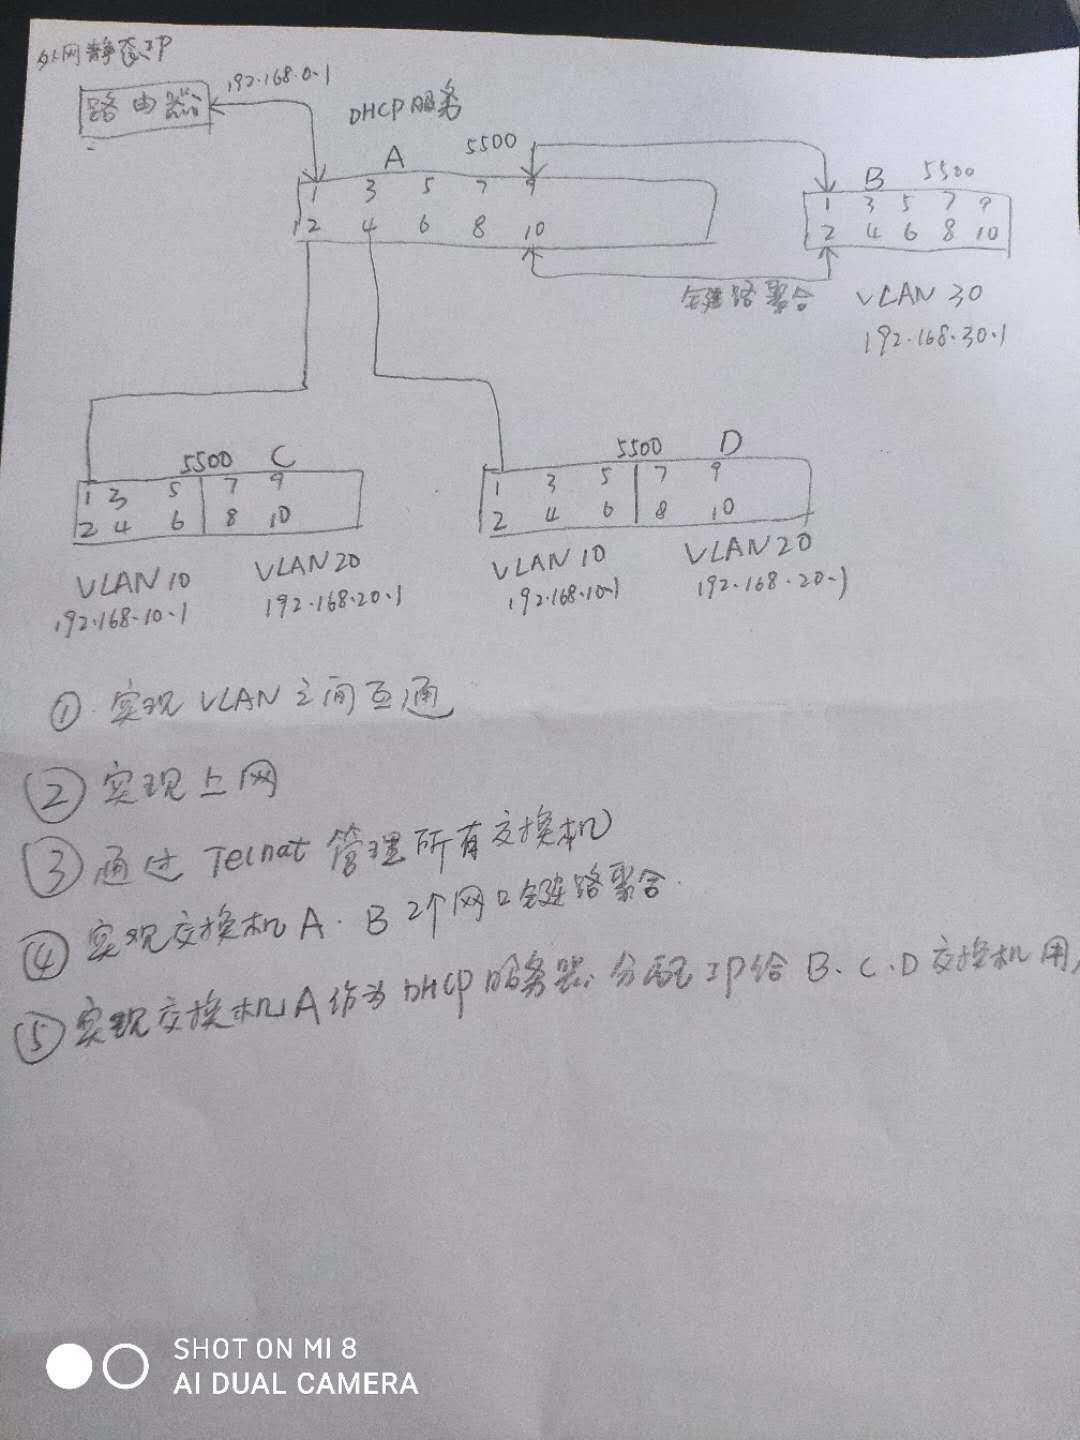 外网静态IP
192.168.0.1
路由器
DHCP服务
A 5500
1 3 5 7 9
2 4 6 8 10
B 5500
1 3 5 7 9
2 4 6 8 10
链路聚合
VLAN 30
192.168.30.1
5500 C
1 3 5 7 9
2 4 6 8 10
VLAN 10
192.168.10.1
VLAN 20
192.168.20.1
5500 D
1 3 5 7 9
2 4 6 8 10
VLAN 10
192.168.10.1
VLAN 20
192.168.20.1
① 实现 VLAN 之间互通
② 实现上网
③ 通过 Telnat 管理所有交换机
④ 实现交换机 A. B 2个网口链路聚合.
⑤ 实现交换机A作为DHCP服务器.分配IP给 B.C.D交换机用,
SHOT ON MI 8
AI DUAL CAMERA